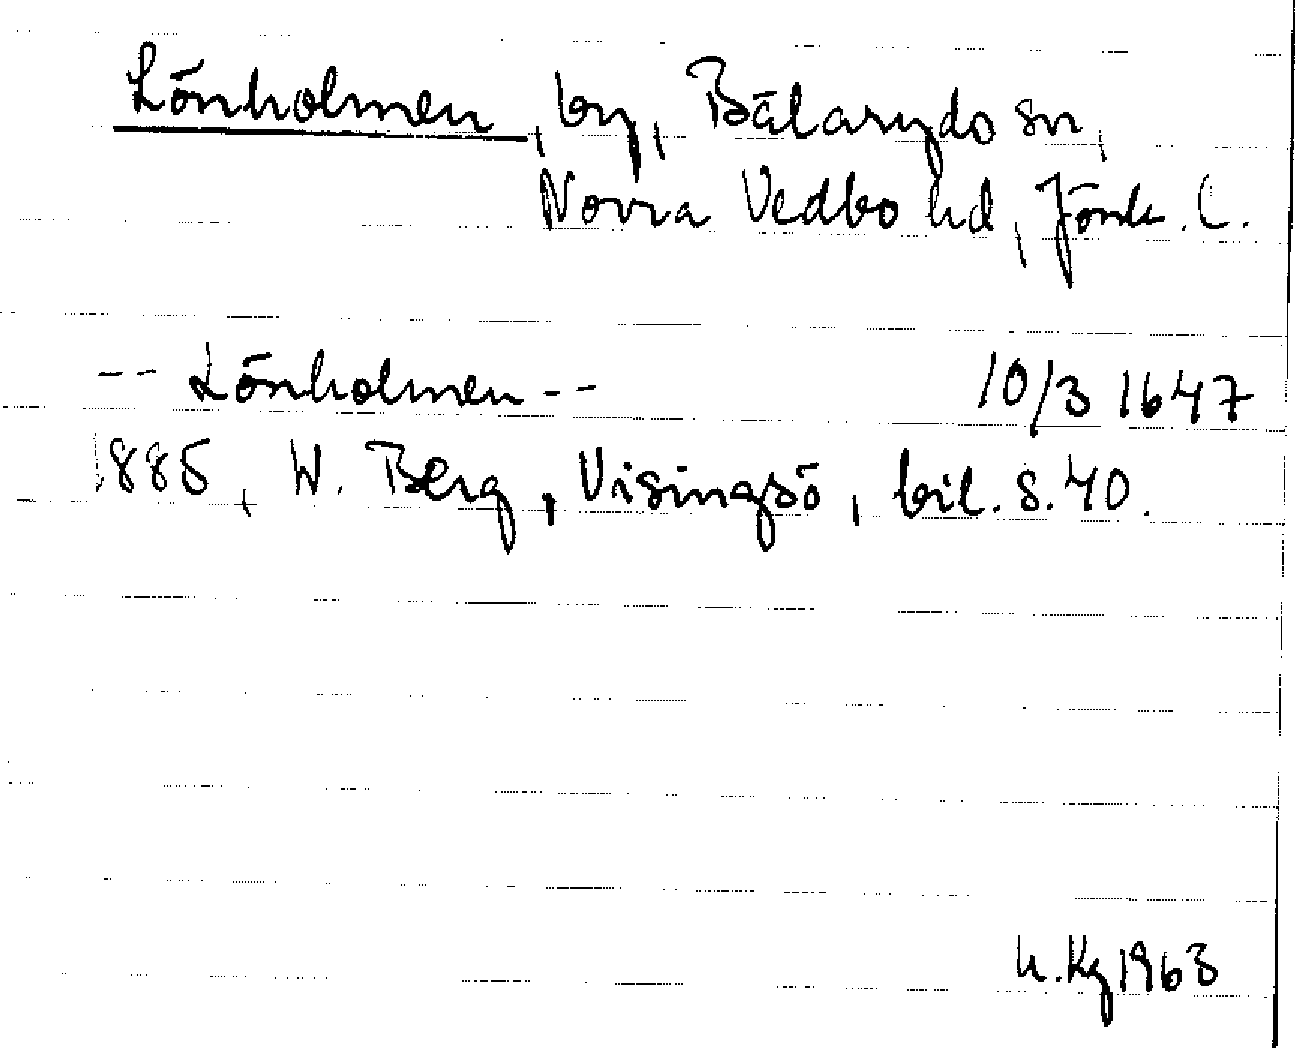 Lönholmen, by, Bälaryds sn,
Norra Vedbo hd, Jönk. l.
-- Lönholmen -- 10/3 1647
1885, W. Berg, Visingsö, bil. s. 40.
h. Kg 1963